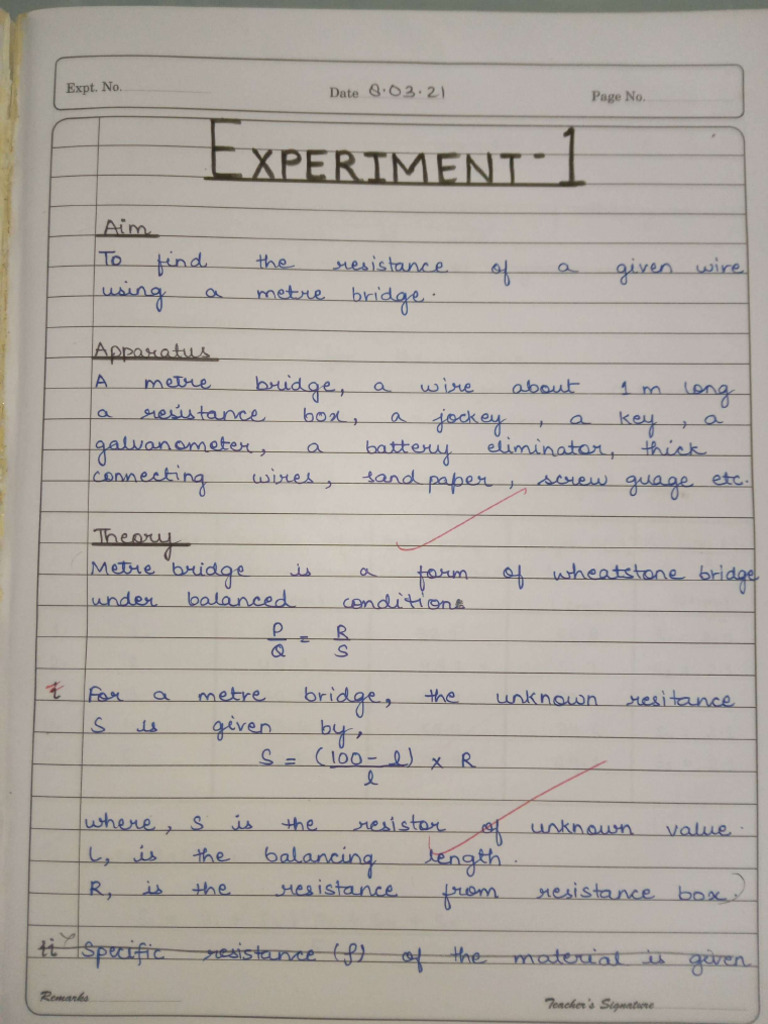 Expt. No.
Date 8.03.21
Page No.
EXPERIMENT-1
Aim
To find the resistance of a given wire
using a metre bridge.
Apparatus
A metre bridge, a wire about 1 m long
a resistance box, a jockey, a key, a
galvanometer, a battery eliminator, thick
connecting wires, sand paper, screw guage etc.
Theory
Metre bridge is a form of wheatstone bridge
under balanced conditions
P/Q = R/S
i For a metre bridge, the unknown resitance
S is given by,
S = (100 - l)/l × R
where, S is the resistor of unknown value.
L, is the balancing length.
R, is the resistance from resistance box.
ii Specific resistance (ρ) of the material is given
Remarks
Teacher's Signature